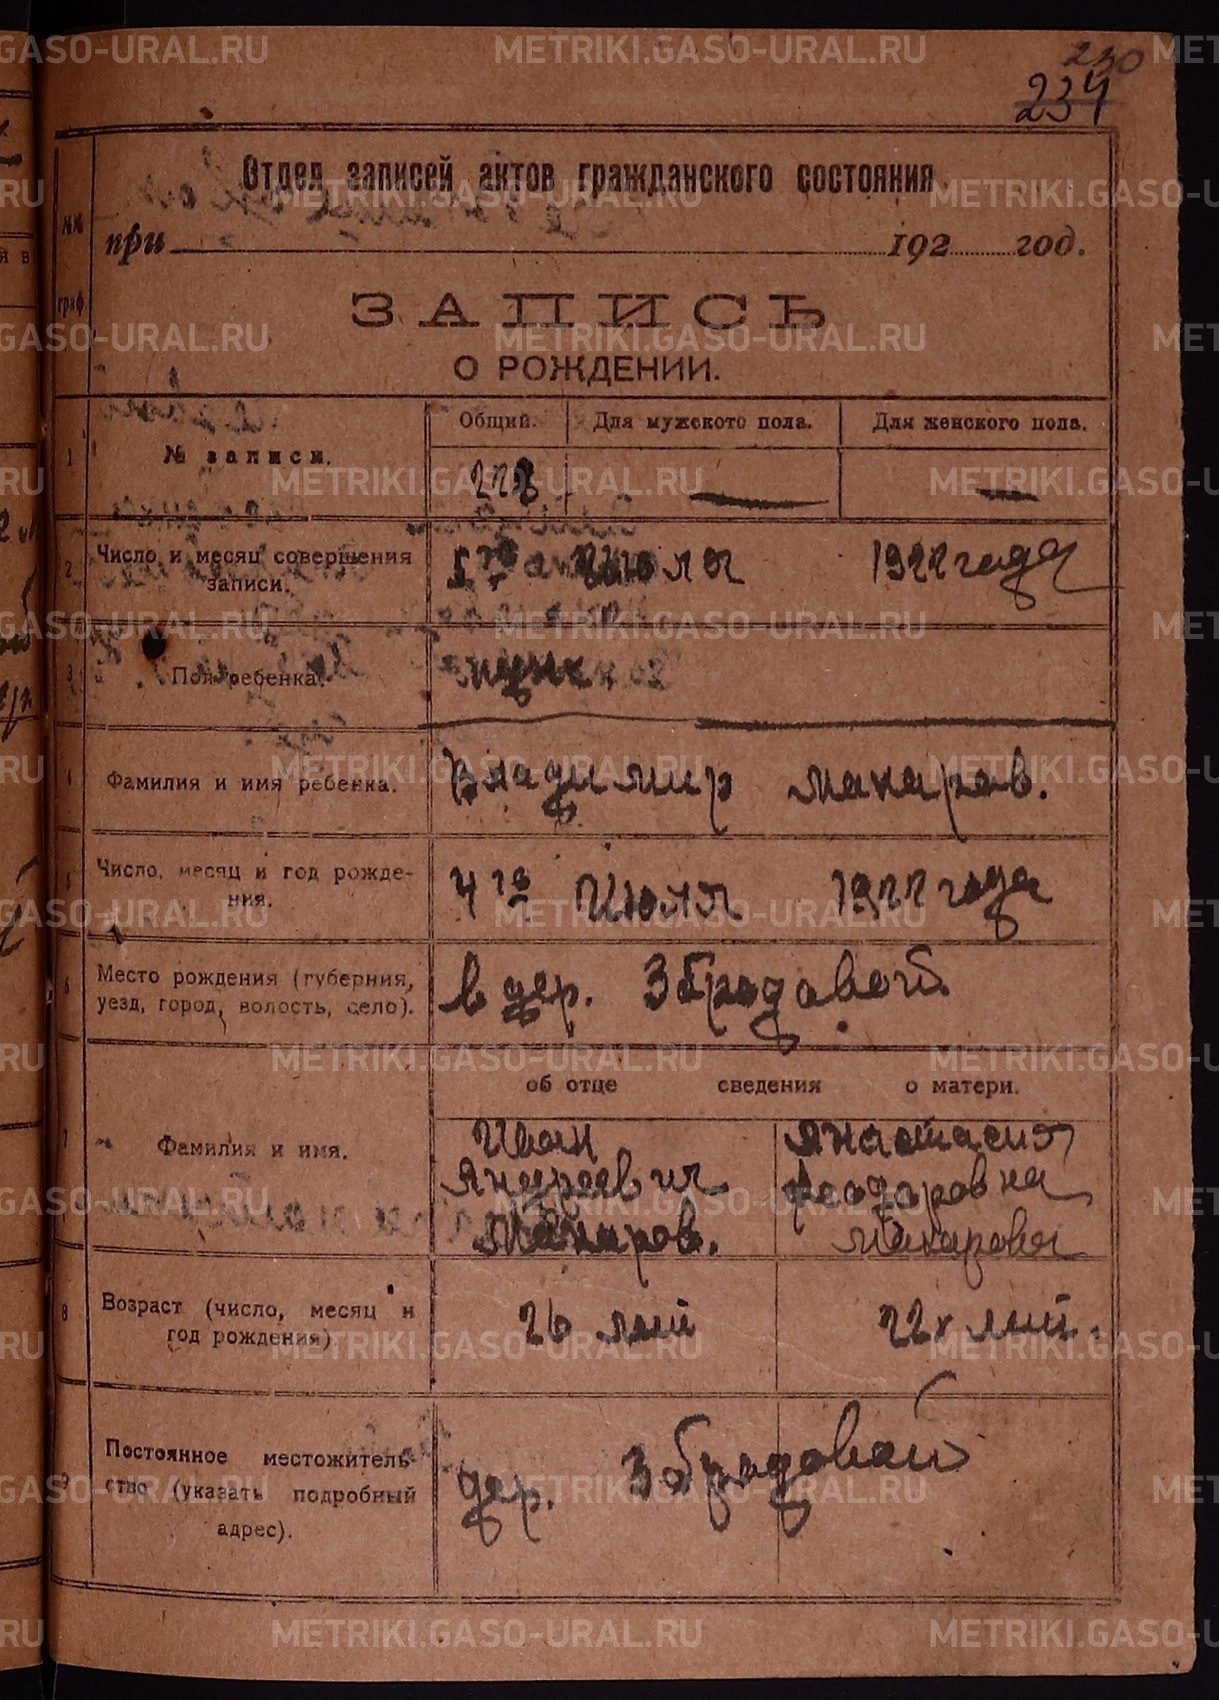 230
234
Отдел записей актов гражданского состояния
при 192 год.
№№ граф.
ЗАПИСЬ
О РОЖДЕНИИ.
1 № записи. Общий. Для мужского пола. Для женского пола.
2 Число и месяц совершения записи. 5го Июля 1922 года
3 Пол ребенка. муж
4 Фамилия и имя ребенка. Владимир Макаров.
5 Число, месяц и год рождения. 4го Июля 1922 года
6 Место рождения (губерния, уезд, город, волость, село). в дер. Збродавой.
об отце сведения о матери.
7 Фамилия и имя.
Иван Анастасия
Андреевич Феодоровна
Макаров. Макарова
8 Возраст (число, месяц и год рождения) 26 лет 22х лет.
9 Постоянное местожительство (указать подробный адрес). дер. Збродовой
METRIKI.GASO-URAL.RU